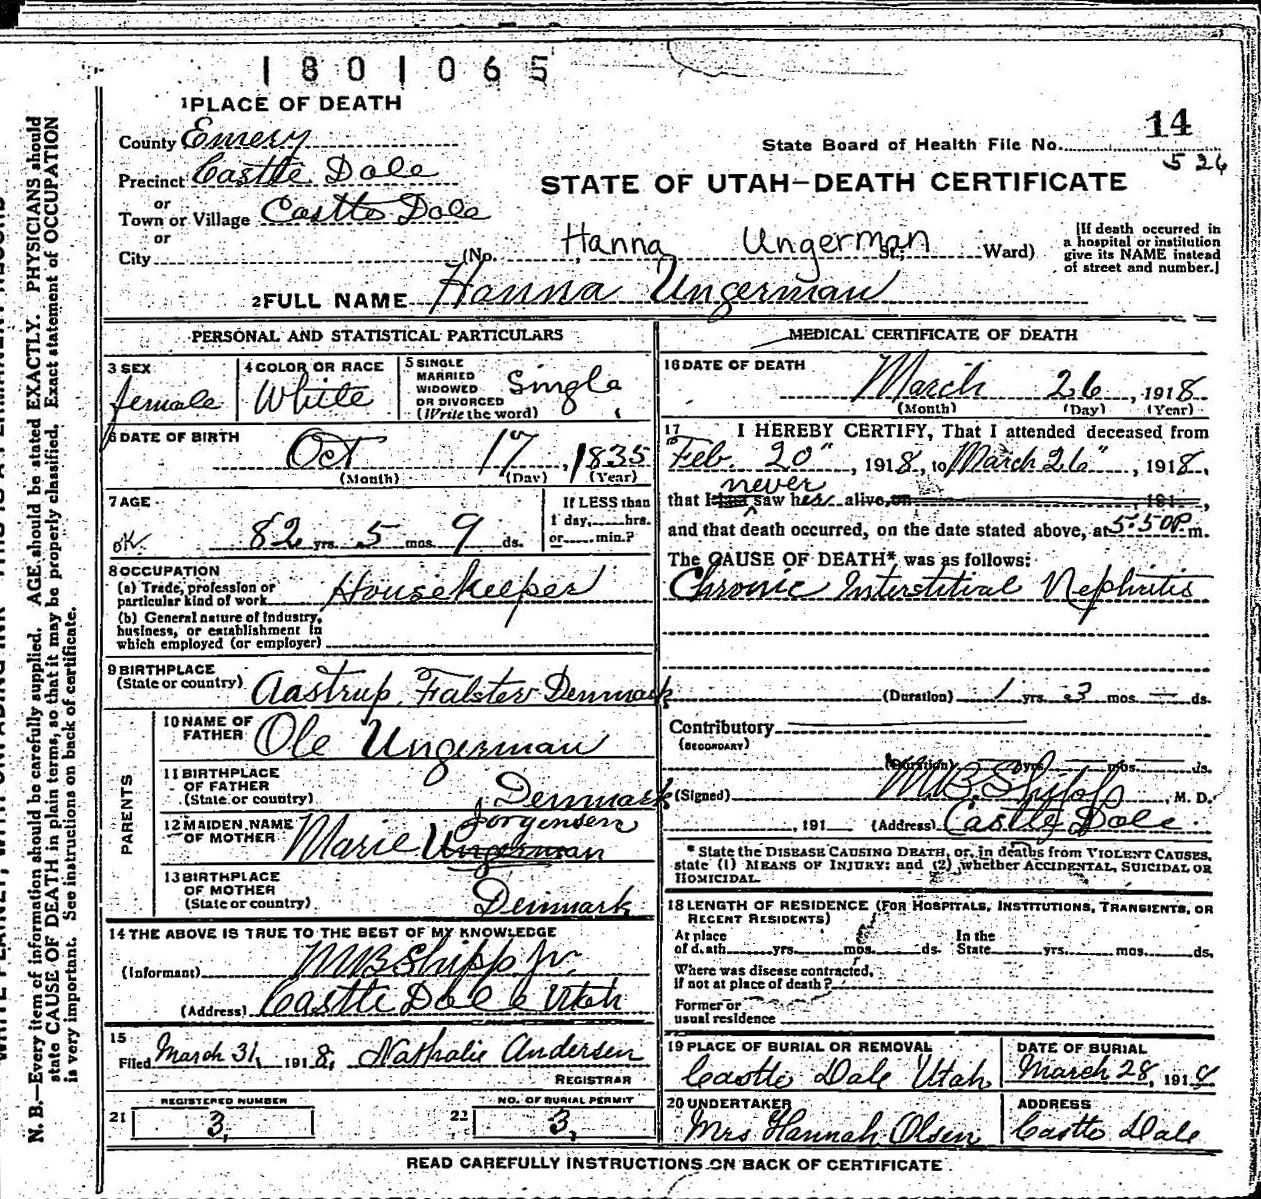 1801065
1 PLACE OF DEATH
County Emery
14
State Board of Health File No.
526
Precinct Castle Dale
or
STATE OF UTAH—DEATH CERTIFICATE
Town or Village Castle Dale
or
City (No. Hanna Ungerman St; Ward)
[If death occurred in
a hospital or institution
give its NAME instead
of street and number.]
2 FULL NAME Hanna Ungerman
PERSONAL AND STATISTICAL PARTICULARS
3 SEX
female
4 COLOR OR RACE
White
5 SINGLE
MARRIED
WIDOWED
OR DIVORCED
(Write the word)
Single
6 DATE OF BIRTH
Oct 17, 1835
(Month) (Day) (Year)
7 AGE
OK. 82 yrs. 5 mos. 9 ds.
If LESS than
1 day, hrs.
or min.?
8 OCCUPATION
(a) Trade, profession or
particular kind of work Housekeeper
(b) General nature of industry,
business, or establishment in
which employed (or employer)
9 BIRTHPLACE
(State or country) Aastrup, Falster Denmark
PARENTS
10 NAME OF
FATHER Ole Ungerman
11 BIRTHPLACE
OF FATHER
(State or country) Denmark
12 MAIDEN NAME Jorgensen
OF MOTHER Marie Ungerman
13 BIRTHPLACE
OF MOTHER
(State or country) Denmark
14 THE ABOVE IS TRUE TO THE BEST OF MY KNOWLEDGE
(Informant) M B Shipp Jr.
(Address) Castle Dale Utah
15
Filed March 31, 1918, Nathalie Andersen
REGISTRAR
REGISTERED NUMBER
21 3,
NO. OF BURIAL PERMIT
22 3,
MEDICAL CERTIFICATE OF DEATH
16 DATE OF DEATH
March 26, 1918
(Month) (Day) (Year)
17 I HEREBY CERTIFY, That I attended deceased from
Feb. 20", 1918, to March 26", 1918,
never
that I last saw her alive on 191 ,
and that death occurred, on the date stated above, at 5:50 P. m.
The CAUSE OF DEATH* was as follows:
Chronic Interstitial Nephritis
(Duration) 1 yrs. 3 mos. — ds.
Contributory
(SECONDARY)
(Duration) yrs. mos. ds.
(Signed) M B Shipp, M. D.
, 191 (Address) Castle Dale.
* State the DISEASE CAUSING DEATH, or, in deaths from VIOLENT CAUSES,
state (1) MEANS OF INJURY; and (2) whether ACCIDENTAL, SUICIDAL OR
HOMICIDAL.
18 LENGTH OF RESIDENCE (FOR HOSPITALS, INSTITUTIONS, TRANSIENTS, OR
RECENT RESIDENTS)
At place In the
of death yrs. mos. ds. State yrs. mos. ds.
Where was disease contracted,
if not at place of death?
Former or
usual residence
19 PLACE OF BURIAL OR REMOVAL
Castle Dale Utah
DATE OF BURIAL
March 28, 1918
20 UNDERTAKER
Mrs Hannah Olsen
ADDRESS
Castle Dale
READ CAREFULLY INSTRUCTIONS ON BACK OF CERTIFICATE
N. B.—Every item of information should be carefully supplied. AGE should be stated EXACTLY. PHYSICIANS should
state CAUSE OF DEATH in plain terms, so that it may be properly classified. Exact statement of OCCUPATION
is very important. See instructions on back of certificate.